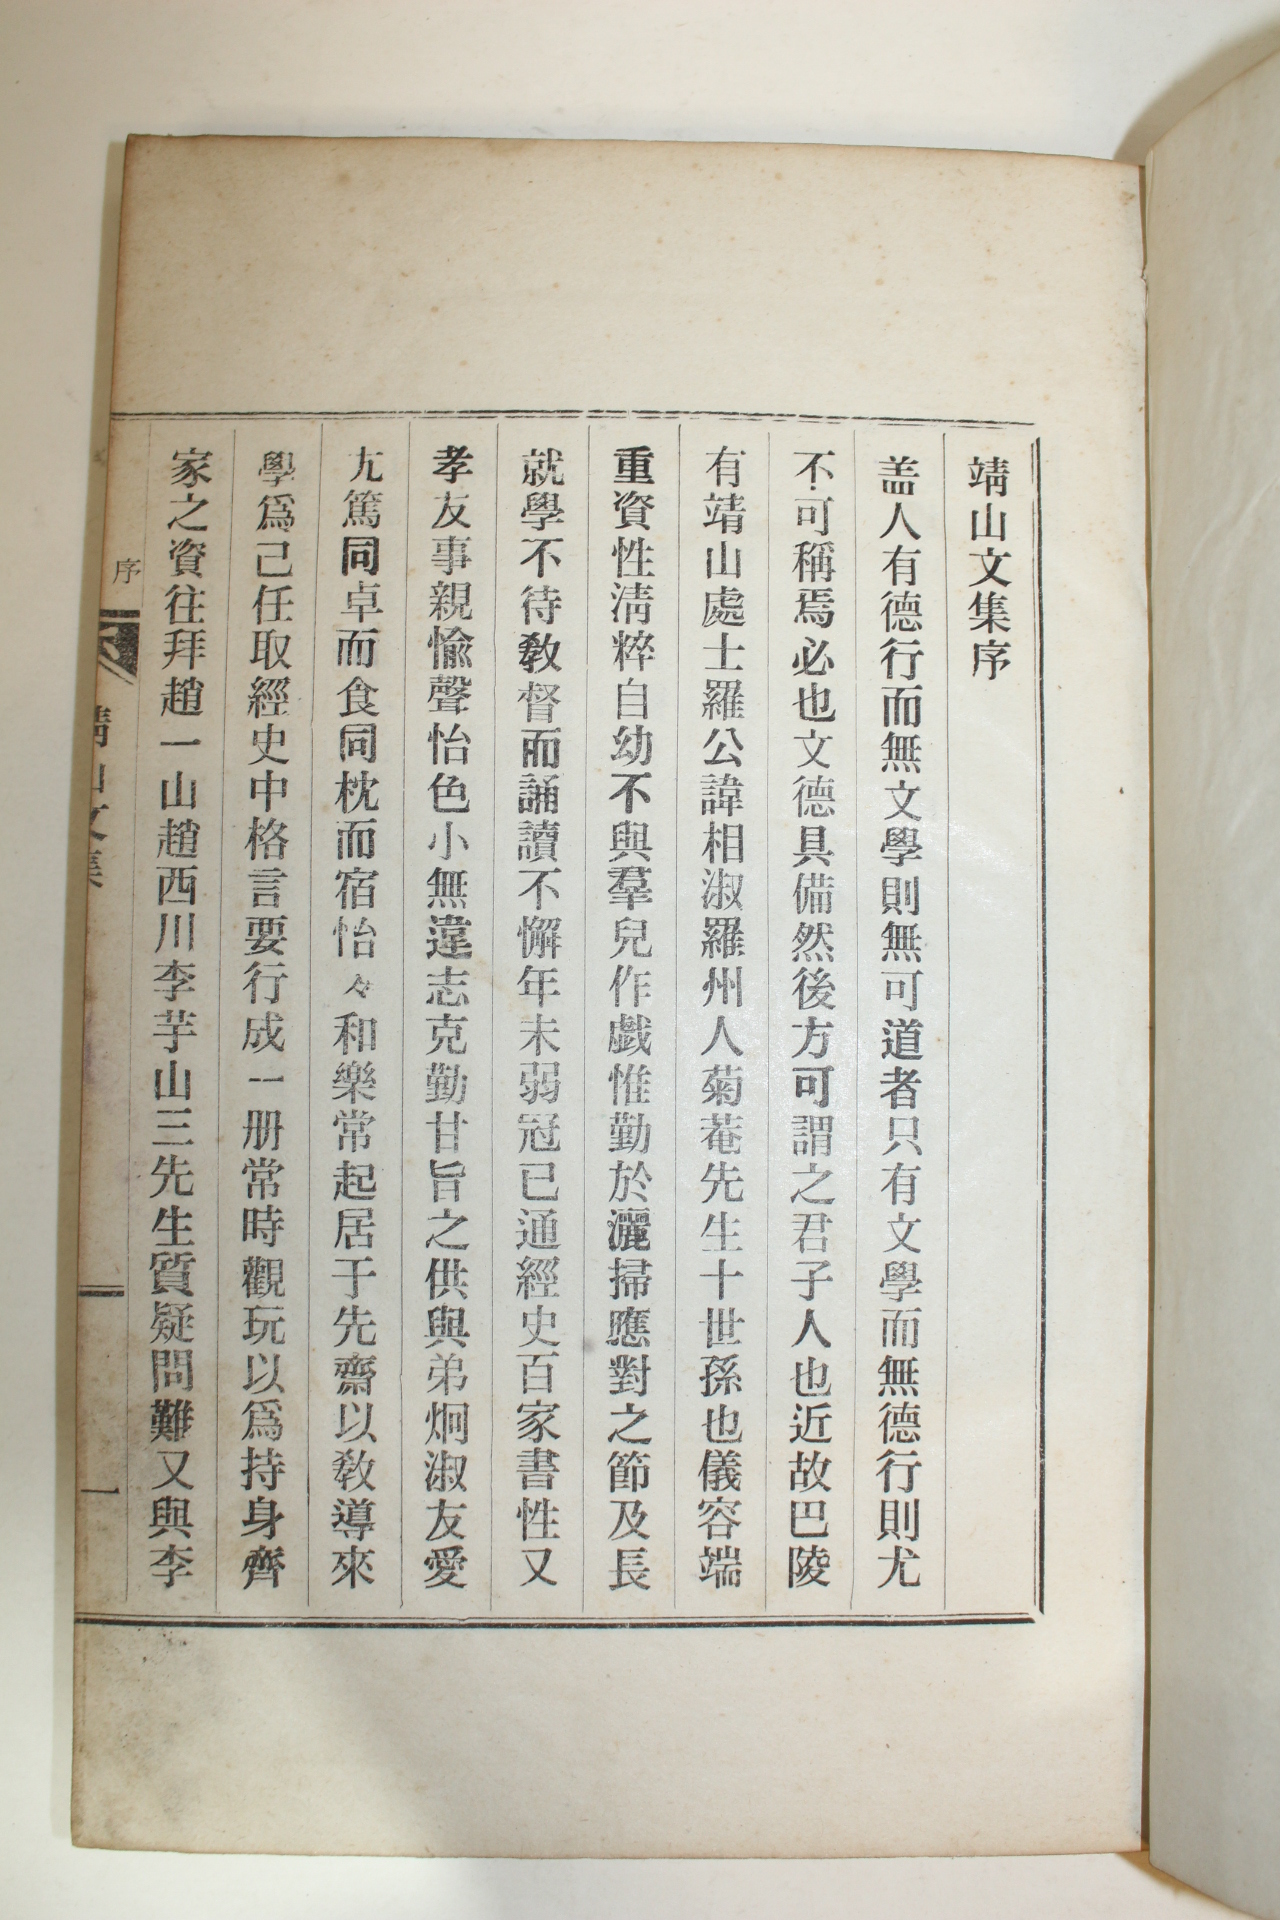 靖山文集序
盖人有德行而無文學則無可道者只有文學而無德行則尤
不可稱焉必也文德具備然後方可謂之君子人也近故巴陵
有靖山處士羅公諱相淑羅州人菊菴先生十世孫也儀容端
重資性淸粹自幼不與羣兒作戱惟勤於灑掃應對之節及長
就學不待敎督而誦讀不懈年未弱冠已通經史百家書性又
孝友事親愉聲怡色小無違志克勤甘旨之供與弟炯淑友愛
尤篤同卓而食同枕而宿怡々和樂常起居于先齋以敎導來
學爲己任取經史中格言要行成一册常時觀玩以爲持身齊
家之資往拜趙一山趙西川李芋山三先生質疑問難又與李
序
靖山文集
一